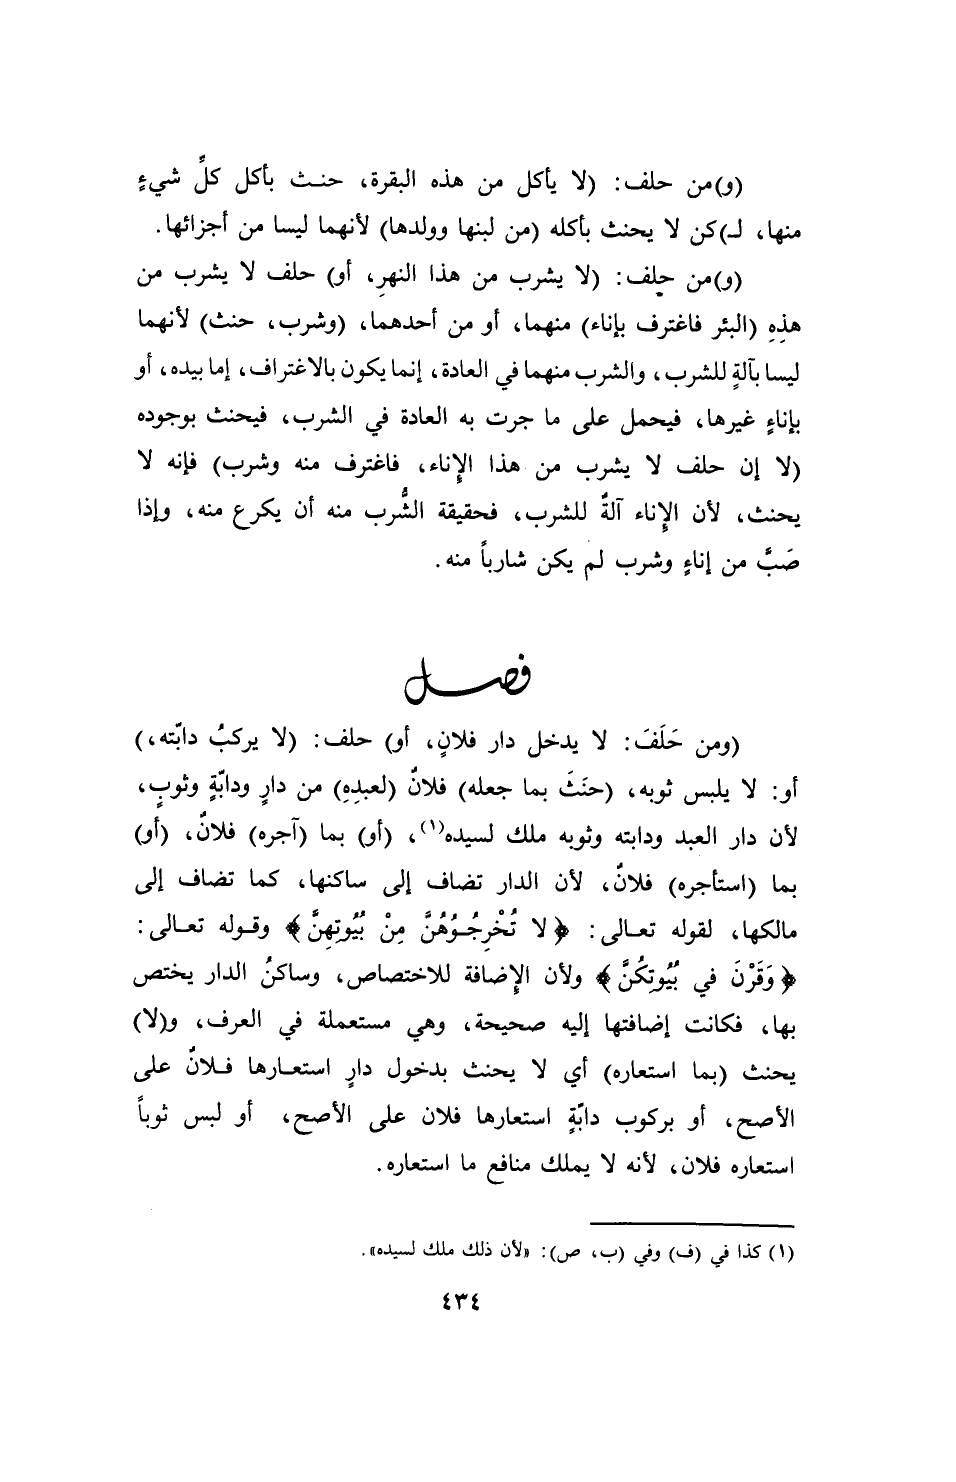 (و)من حلف: (لا يأكل من هذه البقرة، حنث بأكل كلِّ شيءٍ
منها، لـ)كن لا يحنث بأكله (من لبنها وولدها) لأنهما ليسا من أجزائها.
(و)من حلف: (لا يشرب من هذا النهرِ، أو) حلف لا يشرب من
هذِهِ (البئر فاغترف بإناء) منهما، أو من أحدهما، (وشرب، حنث) لأنهما
ليسا بآلةٍ للشرب، والشرب منهما في العادة، إنما يكون بالاغتراف، إما بيده، أو
بإناءٍ غيرها، فيحمل على ما جرت به العادة في الشرب، فيحنث بوجوده
(لا إن حلف لا يشرب من هذا الإناء، فاغترف منه وشرب) فإنه لا
يحنث، لأن الإناء آلةٌ للشرب، فحقيقة الشُّرب منه أن يكرع منه، وإذا
صَبَّ من إناءٍ وشرب لم يكن شارباً منه.
فصل
(ومن حَلَفَ: لا يدخل دار فلانٍ، أو) حلف: (لا يركبُ دابّته،)
أو: لا يلبس ثوبه، (حنَثَ بما جعله) فلانٌ (لعبدِهِ) من دارٍ ودابّةٍ وثوبٍ،
لأن دار العبد ودابته وثوبه ملك لسيده(١)، (أو) بما (آجره) فلانٌ، (أو)
بما (استأجره) فلانٌ، لأن الدار تضاف إلى ساكنها، كما تضاف إلى
مالكها، لقوله تعالى: ﴿لا تُخْرِجُوُهُنَّ مِنْ بُيُوتِهِنَّ﴾ وقوله تعالى:
﴿وَقَرْنَ في بُيُوتِكُنَّ﴾ ولأن الإضافة للاختصاص، وساكنُ الدار يختص
بها، فكانت إضافتها إليه صحيحة، وهي مستعملة في العرف، و(لا)
يحنث (بما استعاره) أي لا يحنث بدخول دارٍ استعارها فلانٌ على
الأصح، أو بركوب دابّةٍ استعارها فلان على الأصح، أو لبس ثوباً
استعاره فلان، لأنه لا يملك منافع ما استعاره.
(١) كذا في (ف) وفي (ب، ص): «لأن ذلك ملك لسيده».
٤٣٤